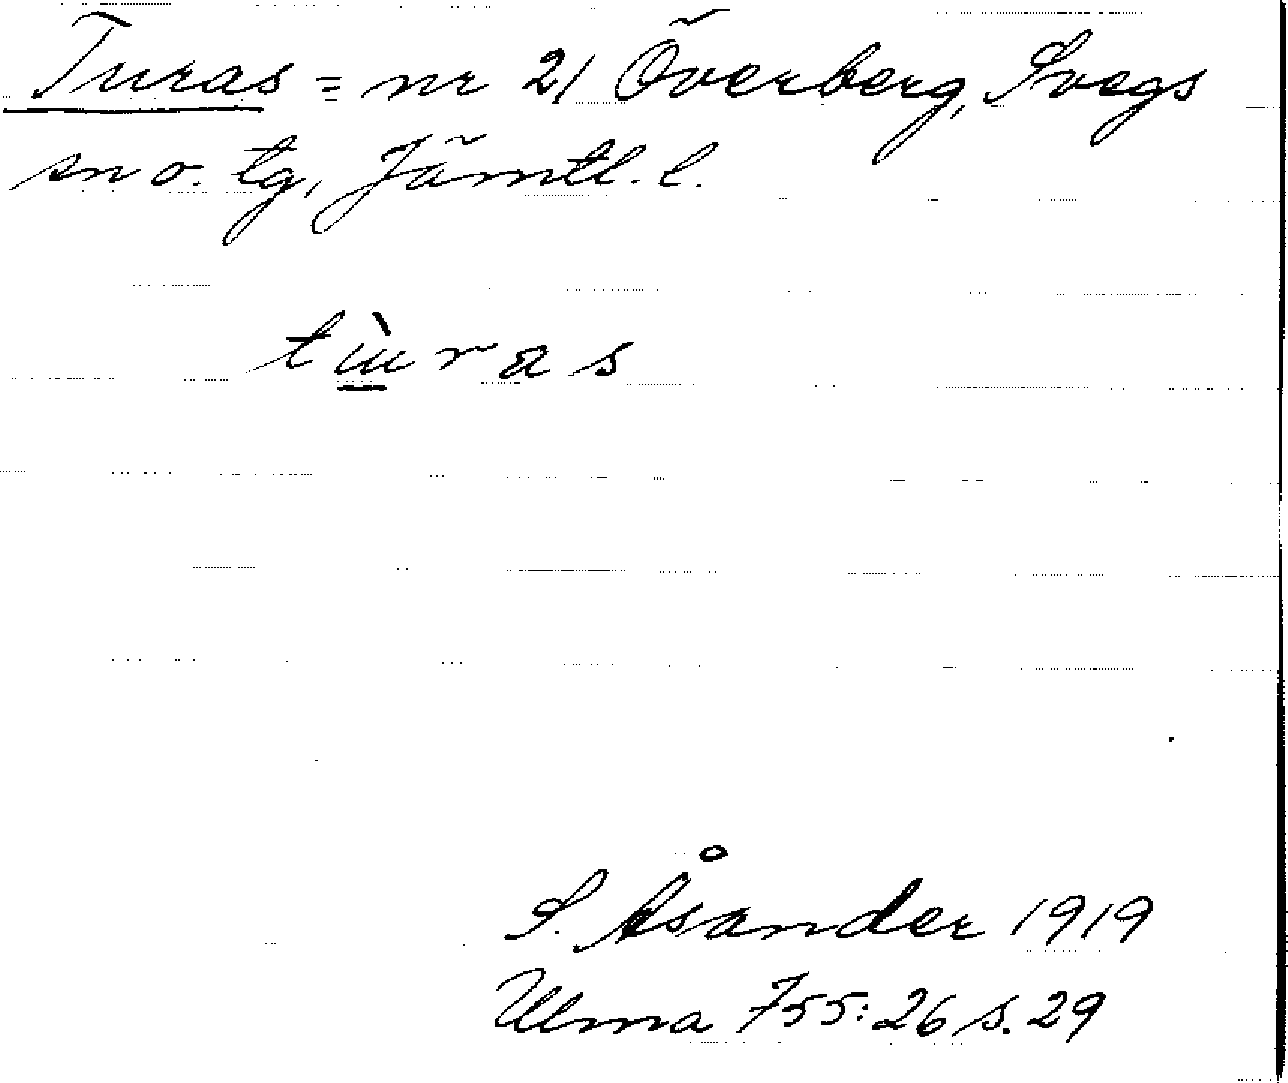 Turas = nr 21 Överberg, Svegs
sn o. tg, Jämtl. l.
tɯ̀ras
S. Åsander 1919
Ulma 755:26 s. 29